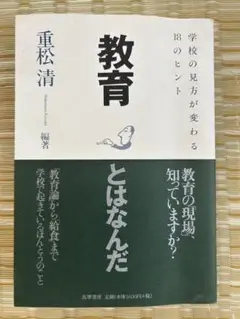 学校の見方が変わる
18のヒント
教育
とはなんだ
重松 清
編著
教育の「現場」、
知っていますか?
教育論から給食まで
学校で起きているほんとうのこと
筑摩書房